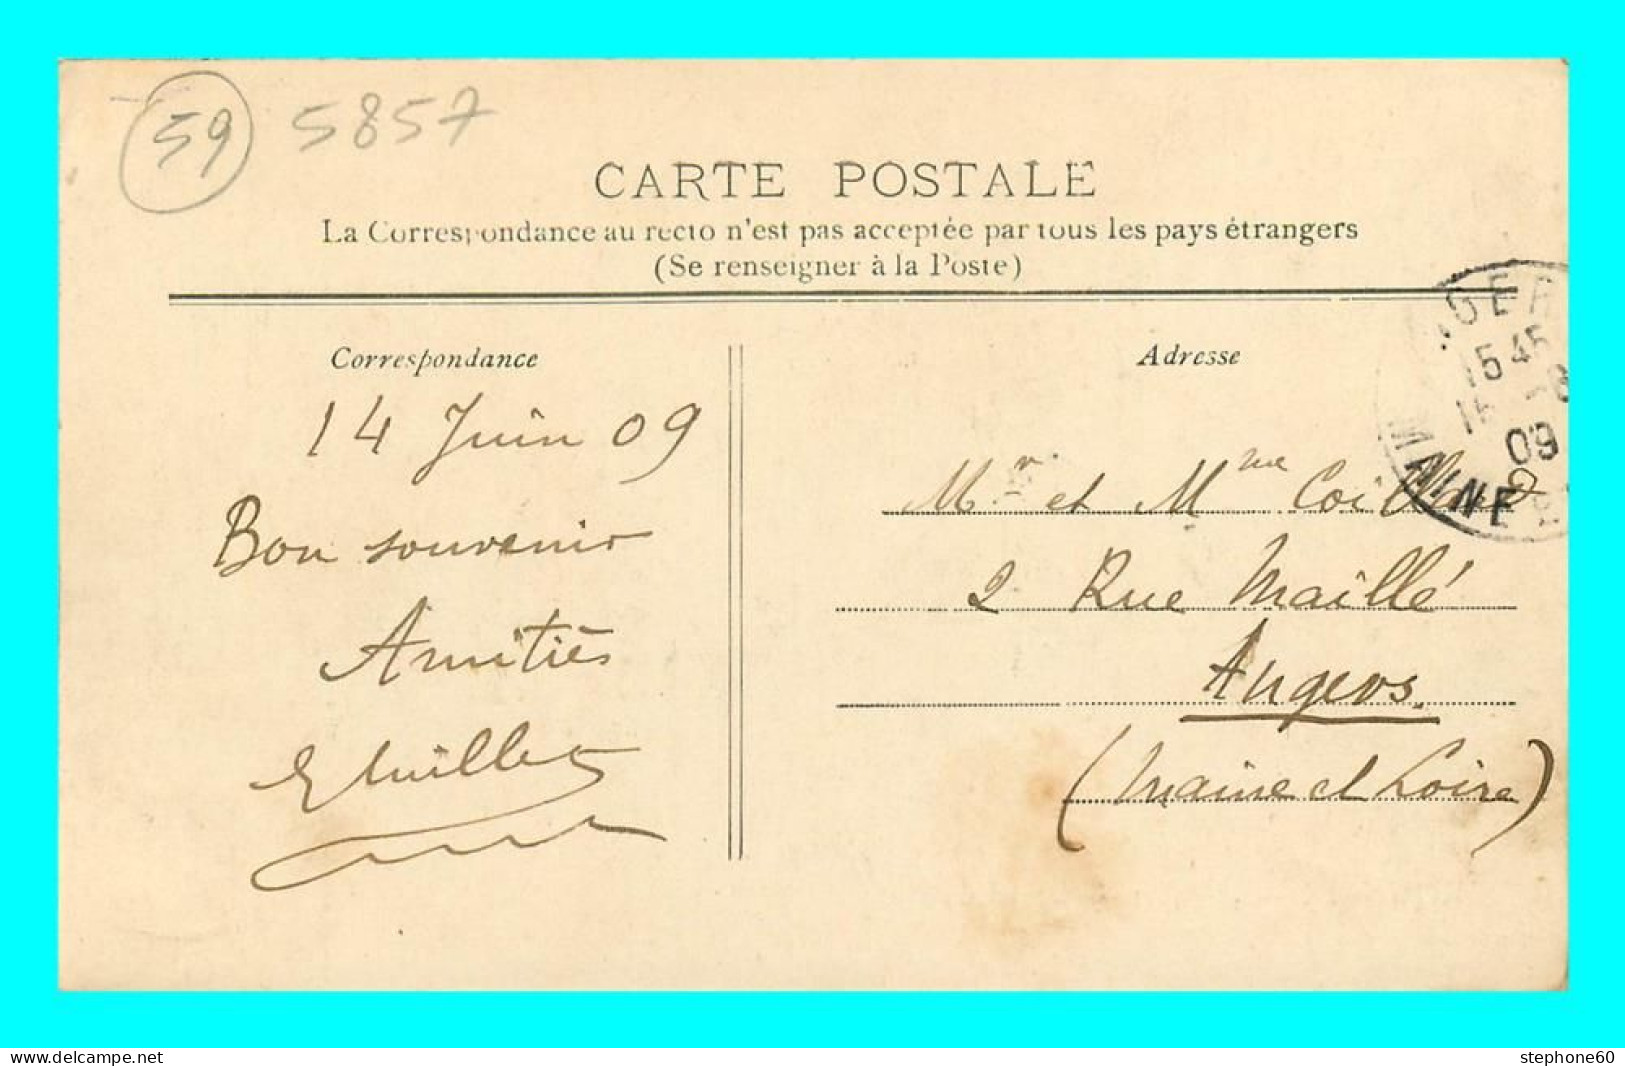 59 5857
CARTE POSTALE
La Correspondance au recto n'est pas acceptée par tous les pays étrangers
(Se renseigner à la Poste)
Correspondance
14 Juin 09
Bon souvenir
Amitiés
Adresse
Mr et Mme Coillard
2 Rue Maillé
Angers
(Maine et Loire)
15 45
09
MAINE
www.delcampe.net
stephone60